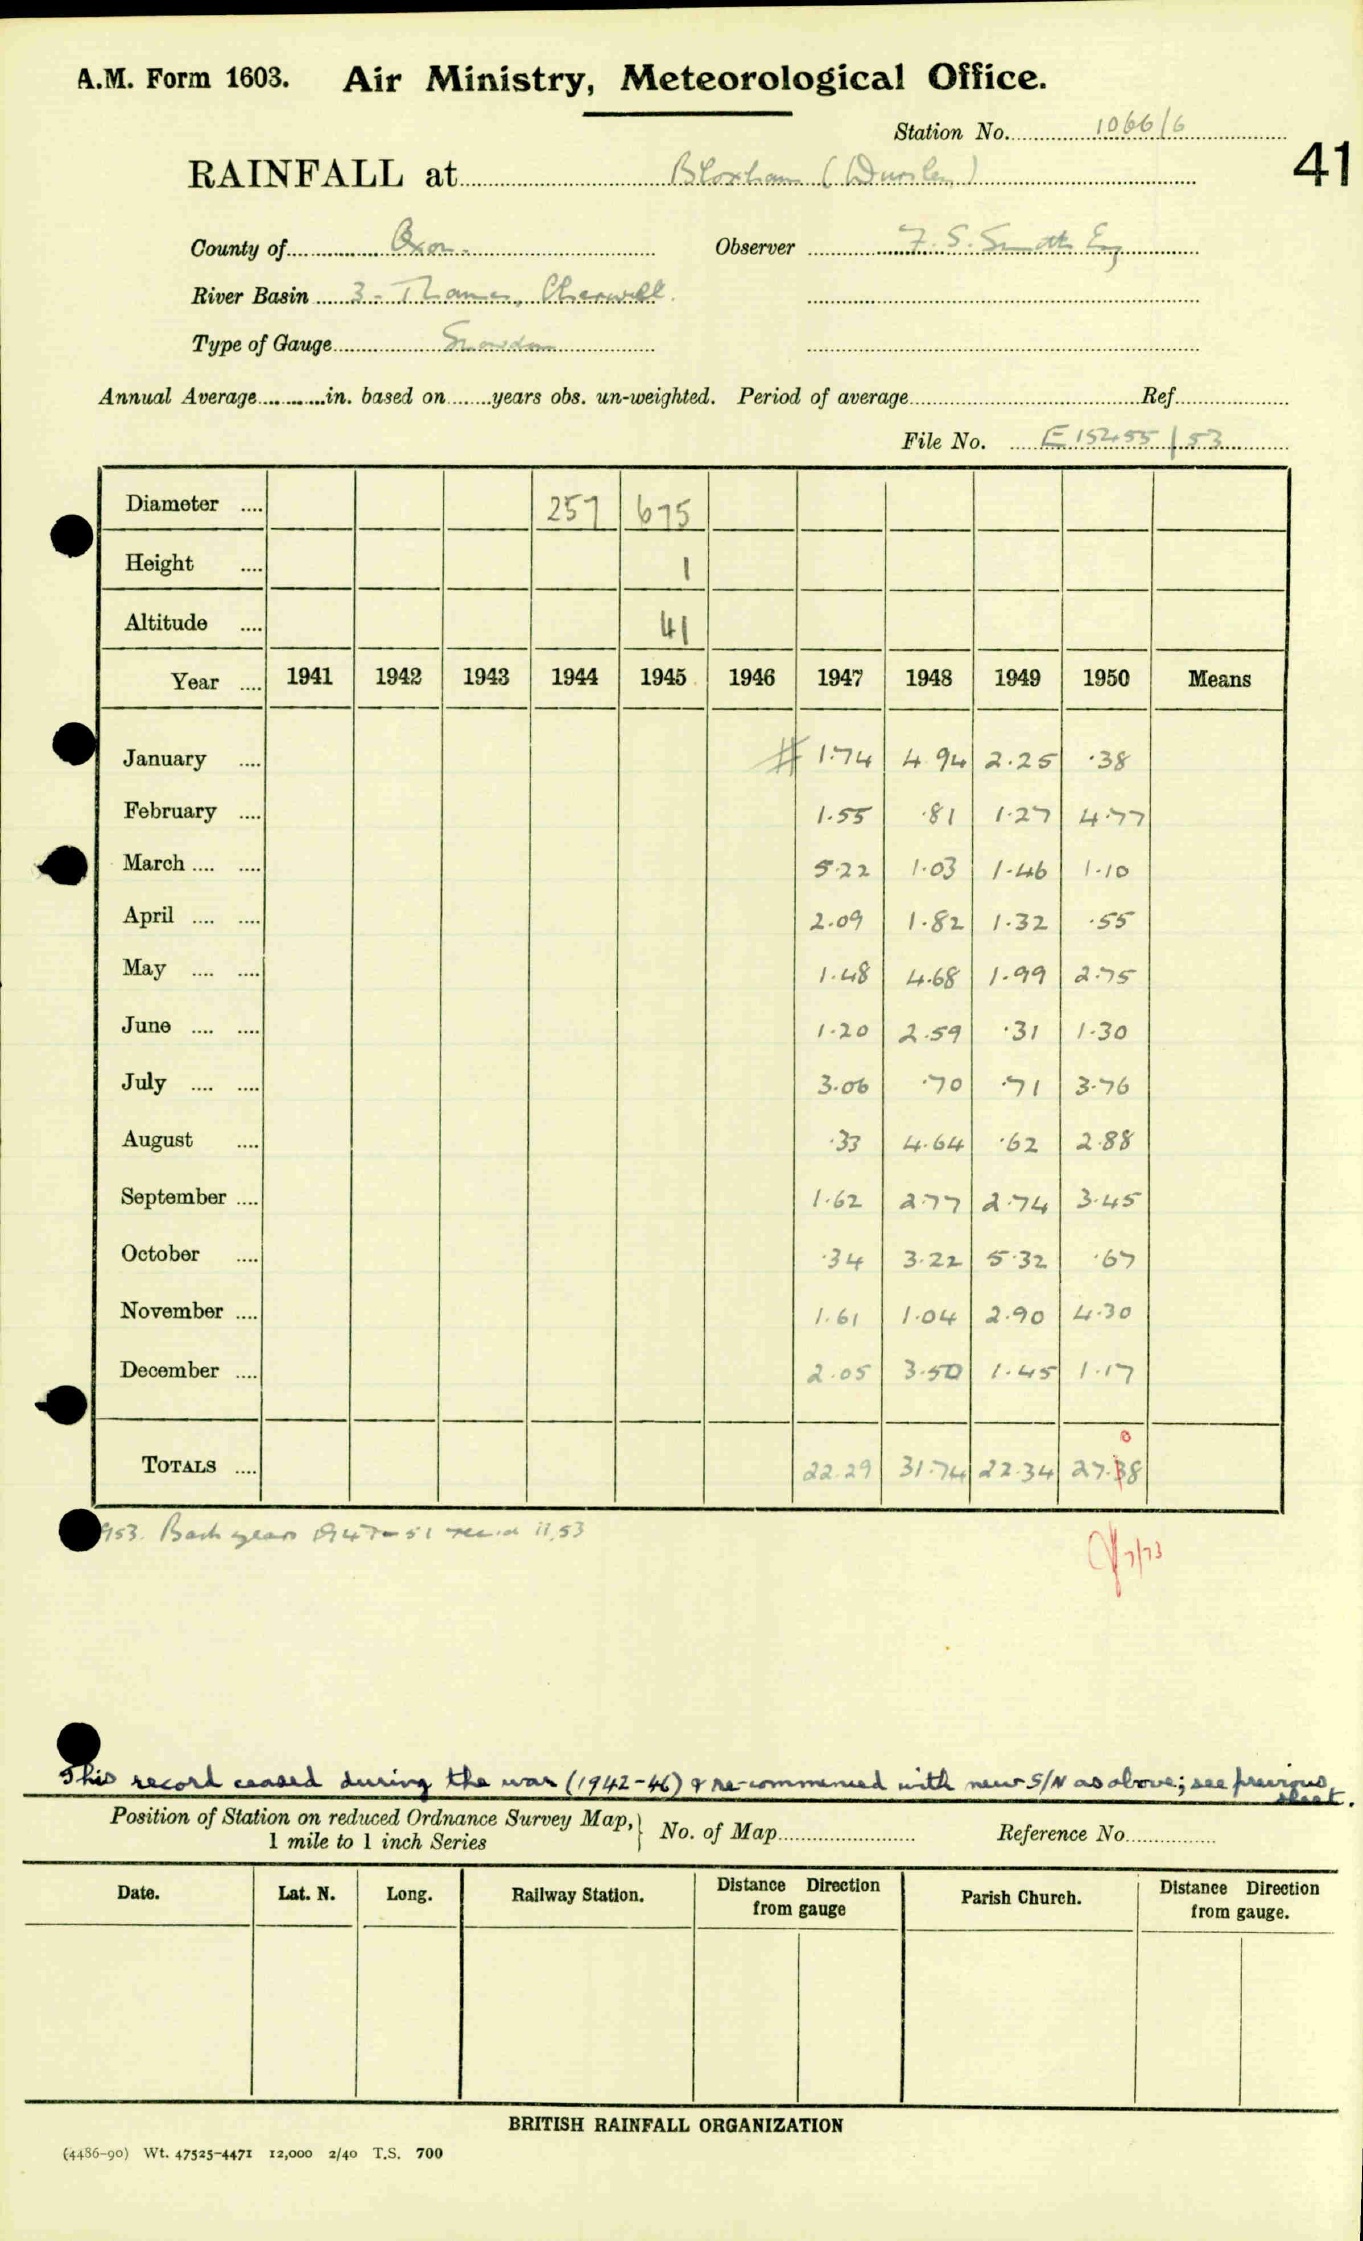 A.M. Form 1603. Air Ministry, Meteorological Office.
Station No. 1066/6
41
RAINFALL at Bloxham (Dursley)
County of Oxon. Observer F. S. Smith Esq
River Basin 3 - Thames, Cherwell.
Type of Gauge Snowdon
Annual Average in. based on years obs. un-weighted. Period of average Ref.
File No. E 15455 / 53
Diameter .... 257 675
Height .... 1
Altitude .... 41
Year .... 1941 1942 1943 1944 1945 1946 1947 1948 1949 1950 Means
January .... # 1.74 4.94 2.25 .38
February .... 1.55 .81 1.27 4.77
March .... .... 5.22 1.03 1.46 1.10
April .... .... 2.09 1.82 1.32 .55
May .... .... 1.48 4.68 1.99 2.75
June .... .... 1.20 2.59 .31 1.30
July .... .... 3.06 .70 .71 3.76
August .... .33 4.64 .62 2.88
September .... 1.62 2.77 2.74 3.45
October .... .34 3.22 5.32 .67
November .... 1.61 1.04 2.90 4.30
December .... 2.05 3.50 1.45 1.17
0
TOTALS .... 22.29 31.74 22.34 27.38
953. Back years 1947-51 rec.d 11.53
7/73
This record ceased during the war (1942-46) & re-commenced with new S/N as above; see previous
sheet.
Position of Station on reduced Ordnance Survey Map, No. of Map Reference No.
1 mile to 1 inch Series
Date. Lat. N. Long. Railway Station. Distance Direction from gauge Parish Church. Distance Direction from gauge.
BRITISH RAINFALL ORGANIZATION
(4486-90) Wt. 47525-4471 12,000 2/40 T.S. 700